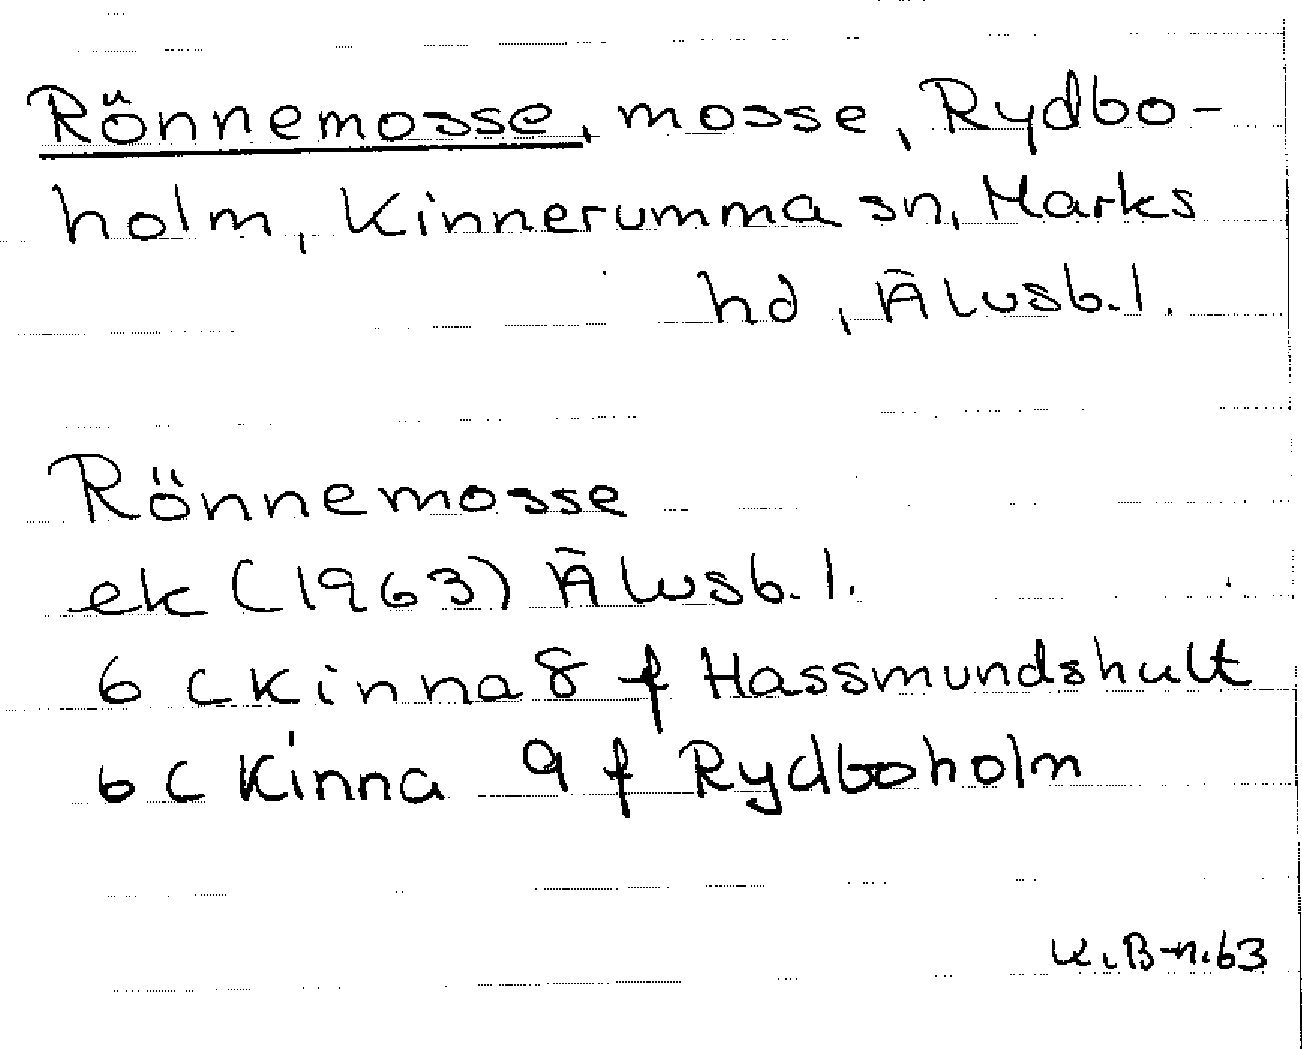 Rönnemosse, mosse, Rydbo-
holm, Kinnerumma sn, Marks
hd, Älvsb.l.
Rönnemosse
ek (1963) Älvsb.l.
6 C Kinna 8 f Hassmundshult
6 C Kinna 9 f Rydboholm
K.B-n.63